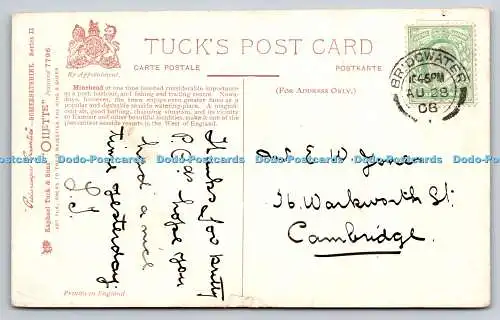 TUCK'S POST CARD
By Appointment.
CARTE POSTALE
POSTKARTE
Minehead at one time boasted considerable importance
as a port, harbour, and fishing and trading centre. Nowa-
days, however, the town enjoys even greater fame as a
popular and delightful seaside watering-place. A magnifi-
cent air, good bathing, charming situation, and its vicinity
to Exmoor and other beautiful localities, make it one of the
prettiest seaside resorts in the West of England.
(FOR ADDRESS ONLY.)
BRIDGWATER
10.45PM
AU 28
08
"Picturesque Counties" SOMERSETSHIRE. Series II
Raphael Tuck & Sons' "OILETTE" [Regd.] Postcard 7796
ART PUBLISHERS TO THEIR MAJESTIES THE KING & QUEEN
Thanks for pretty
P.C. as hope you
had a nice
time yesterday
E W Jones
36 Warkworth St.
Cambridge.
Printed in England.
Dodo-Postcards Dodo-Postcards Dodo-Postcards Dodo-Postcards Dodo-Postcards Dodo-Postcards